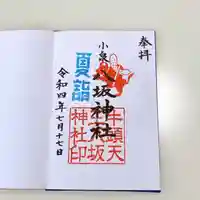 奉拝
小泉
八坂神社
夏詣
牛頭天
坂
神社印
令和四年七月十七日